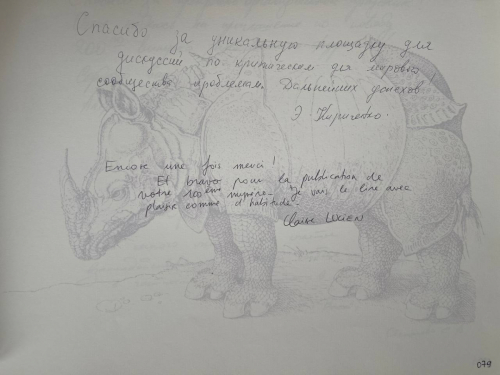 Спасибо за уникальную площадку для
дискуссий по критическим для мирового
сообщества проблемам. Дальнейших успехов
Э Кириченко.
Encore une fois merci !
Et bravo pour la publication de
votre 100ème numéro. Je vais le lire avec
plaisir comme d'habitude.
Claire LUCIEN
079